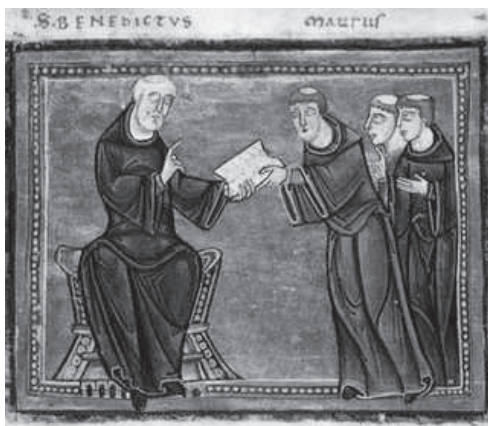 S. BENEDICTVS MAURUS